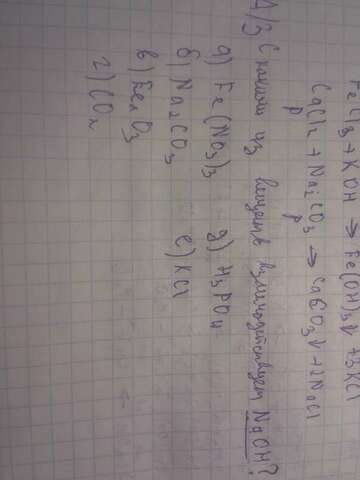 FeCl3 + KOH → Fe(OH)3↓ + 3KCl
CaCl2 + Na2CO3 → CaCO3↓ + 2NaCl
р р
Д/З С какими из веществ взаимодействует NaOH?
а) Fe(NO3)3 д) H3PO4
б) Na2CO3 е) KCl
в) Fe2O3
г) CO2